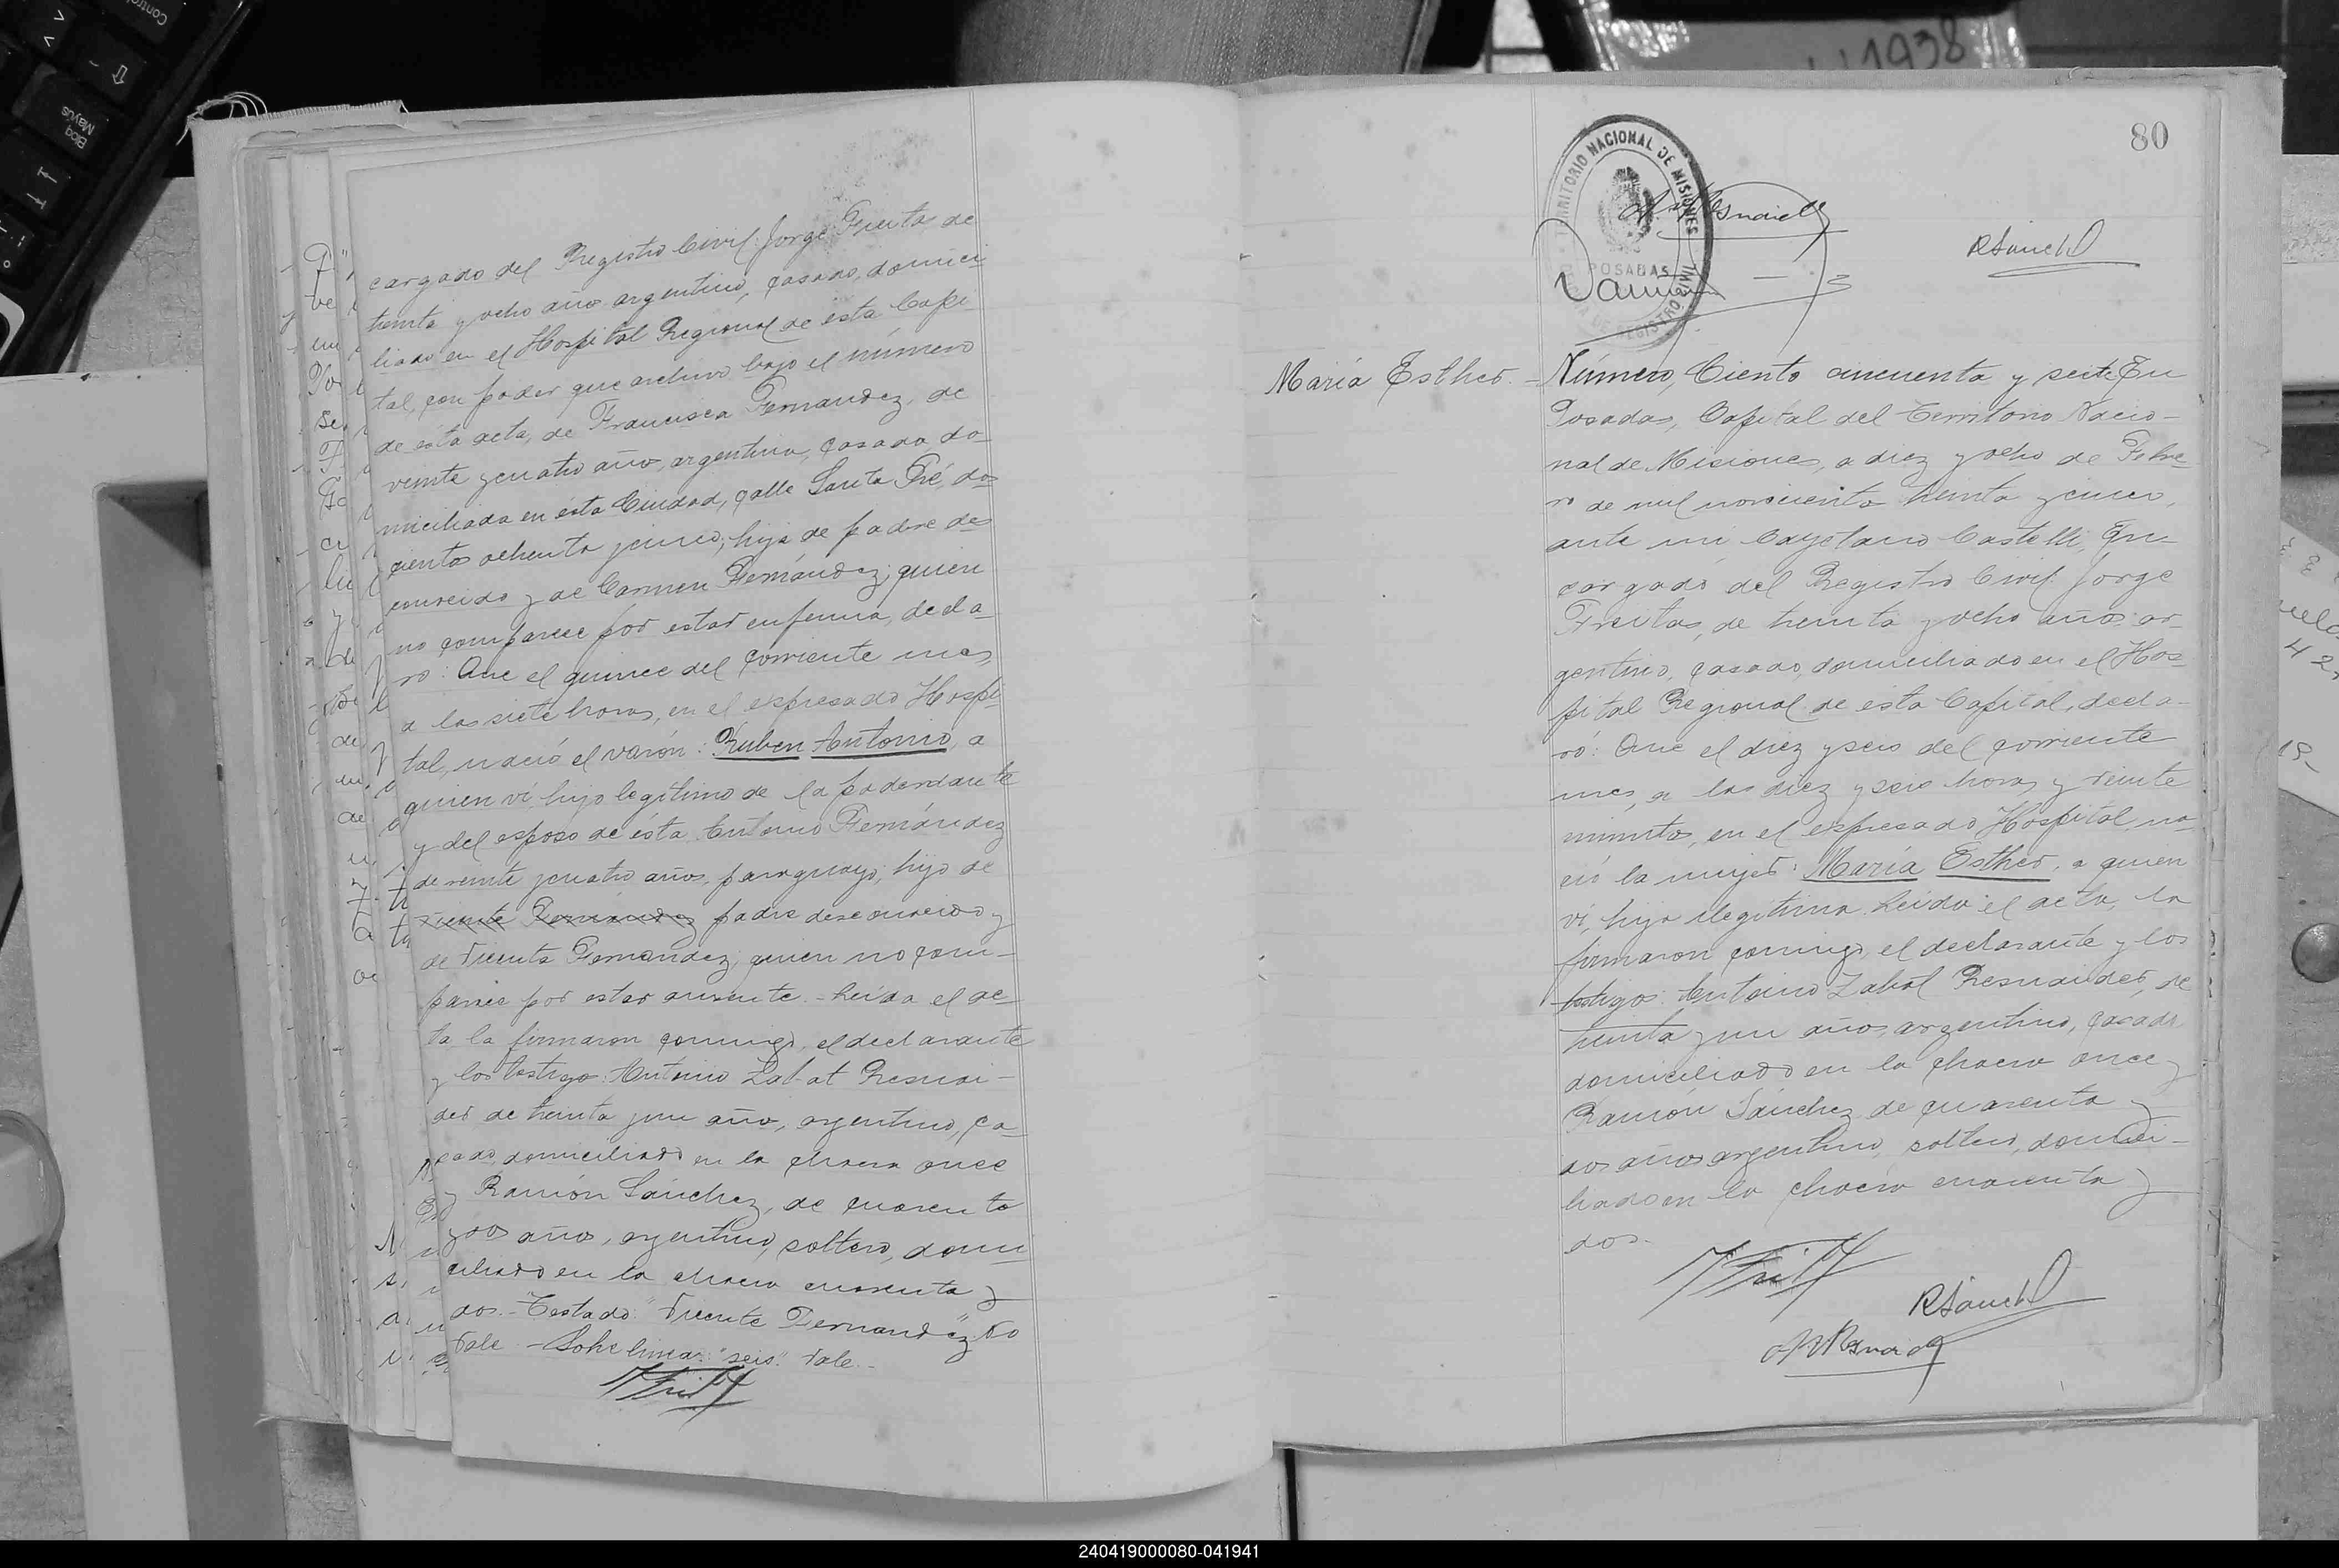 cargado del Registro Civil: Jorge Freitas de
treinta y ocho años argentino, casado, domici
liado en el Hospital Regional de esta Capi
tal, con poder que archivo bajo el número
de esta acta, de Francisca Fernandez, de
veinte y cuatro años, argentina, casada do-
miciliada en ésta Ciudad, calle Santa Fé, dos
cientos ochenta y cinco, hija de padre des
conocido y de Carmen Fernández; quien
no comparece por estar enferma, decla-
ró: Que el quince del corriente mes,
a las siete horas, en el espresado Hospi-
tal, nació el varón: Ruben Antonio, a
quien ví, hijo legítimo de la poderdante
y del esposo de ésta Antonio Fernández
de veinte y cuatro años, paraguayo; hijo de
Vicente Fernandez padre desconocido y
de Vicenta Fernandez; quien no com-
parece por estar ausente. - Leída el ac
ta, la firmaron conmigo, el declarante
y los testigos: Antonio Zabat Resnai-
der de treinta y un años, argentino, ca-
sado, domiciliado en la chacra once
y Ramón Sánchez, de cuarenta
y dos años, argentino, soltero, domi
ciliado en la chacra cuarenta y
dos. - Testado: "Vicente Fernandez" No
vale - Sobre linea: "seis" Vale. -
80
TERRITORIO NACIONAL DE MISIONES
POSADAS
REGISTRO CIVIL
RSanchez
María Esther. - Número, Ciento cincuenta y siete En
Posadas, Capital del Territorio Nacio-
nal de Misiones, a diez y ocho de Febre-
ro de mil novecientos treinta y cinco,
ante mi Cayetano Castelli, En-
cargado del Registro Civil: Jorge
Freitas, de treinta y ocho años ar-
gentino, casado, domiciliado en el Hos-
pital Regional de esta Capital, decla-
ró: Que el diez y seis del corriente
mes, a las diez y seis horas y veinte
minutos, en el espresado Hospital na-
ció la mujer: María Esther, a quien
ví, hija ilegitima. Leída el acta, la
firmaron conmigo, el declarante y los
testigos: Antonio Zabat Resnaider, de
treinta y un años, argentino, casado
domiciliado en la chacra once y
Ramón Sánchez de cuarenta y
dos años argentino, soltero, domici-
liado en la chacra cuarenta y
dos. -
RSanchez
1938
240419000080-041941